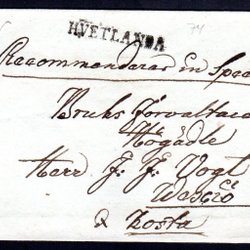 HVETLANDA
74
Recommenderas en
Bruks Förvaltare
Högädle
Herr J. J. Vogt
Wexiö
&